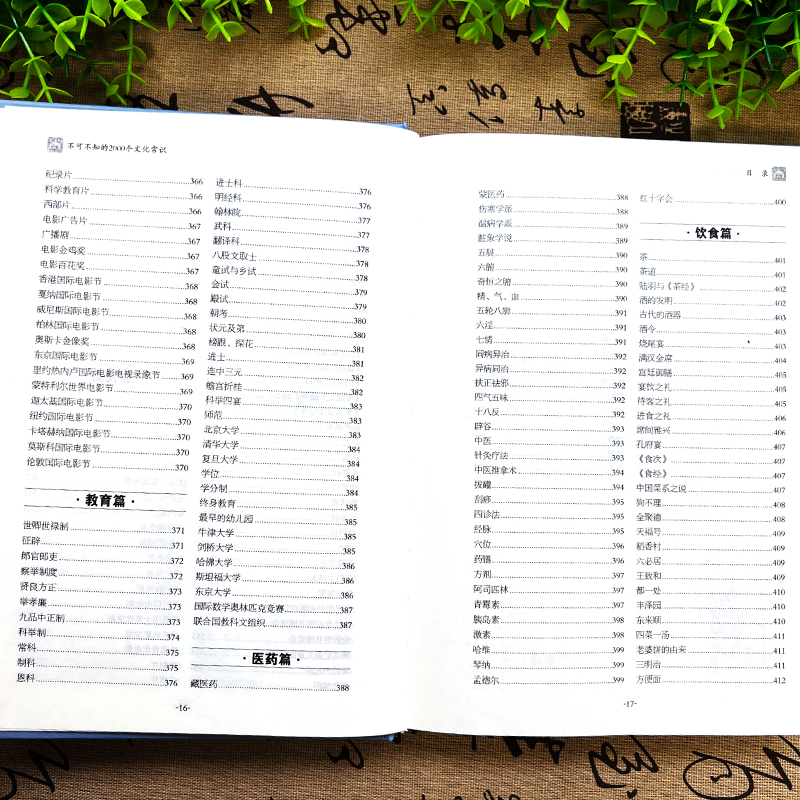 不可不知的2000个文化常识
纪录片 366
科学教育片 366
西部片 366
电影广告片 367
广播剧 367
电影金鸡奖 367
电影百花奖 367
香港国际电影节 368
戛纳国际电影节 368
威尼斯国际电影节 368
柏林国际电影节 368
奥斯卡金像奖 368
东京国际电影节 369
里约热内卢国际电影电视录像节 369
蒙特利尔世界电影节 369
迦太基国际电影节 370
纽约国际电影节 370
卡塔赫纳国际电影节 370
莫斯科国际电影节 370
伦敦国际电影节 370
·教育篇·
世卿世禄制 371
征辟 371
郎官郎吏 372
察举制度 372
贤良方正 373
举孝廉 373
九品中正制 373
科举制 374
常科 375
制科 375
恩科 376
进士科 376
明经科 376
翰林院 377
武科 377
翻译科 378
八股文取士 378
童试与乡试 378
会试 379
殿试 379
朝考 380
状元及第 380
榜眼、探花 381
进士 381
连中三元 382
蟾宫折桂 382
科举四宴 383
师范 383
北京大学 383
清华大学 384
复旦大学 384
学位 384
学分制 384
终身教育 385
最早的幼儿园 385
牛津大学 385
剑桥大学 385
哈佛大学 386
斯坦福大学 386
东京大学 386
国际数学奥林匹克竞赛 387
联合国教科文组织 387
·医药篇·
藏医药 388
-16-
目 录
蒙医药 388
伤寒学派 388
温病学派 389
脏象学说 389
五脏 390
六腑 390
奇恒之腑 390
精、气、血 390
五轮八廓 391
六淫 391
七情 391
同病异治 392
异病同治 392
扶正祛邪 392
四气五味 392
十八反 392
辟谷 393
中医 393
针灸疗法 393
中医推拿术 394
拔罐 394
刮痧 394
四诊法 395
经脉 395
穴位 396
药膳 396
方剂 397
阿司匹林 397
青霉素 397
胰岛素 398
激素 398
哈维 399
琴纳 399
孟德尔 399
红十字会 400
·饮食篇·
茶 401
茶道 401
陆羽与《茶经》 402
酒的发明 402
古代的酒器 403
酒令 403
烧尾宴 403
满汉全席 404
宫廷御膳 404
宴饮之礼 405
待客之礼 405
进食之礼 406
席间雅兴 406
孔府宴 407
《食次》 407
《食经》 407
中国菜系之说 407
狗不理 408
全聚德 408
天福号 409
稻香村 409
六必居 409
王致和 409
都一处 410
丰泽园 410
东来顺 410
四菜一汤 411
老婆饼的由来 411
三明治 411
方便面 412
-17-